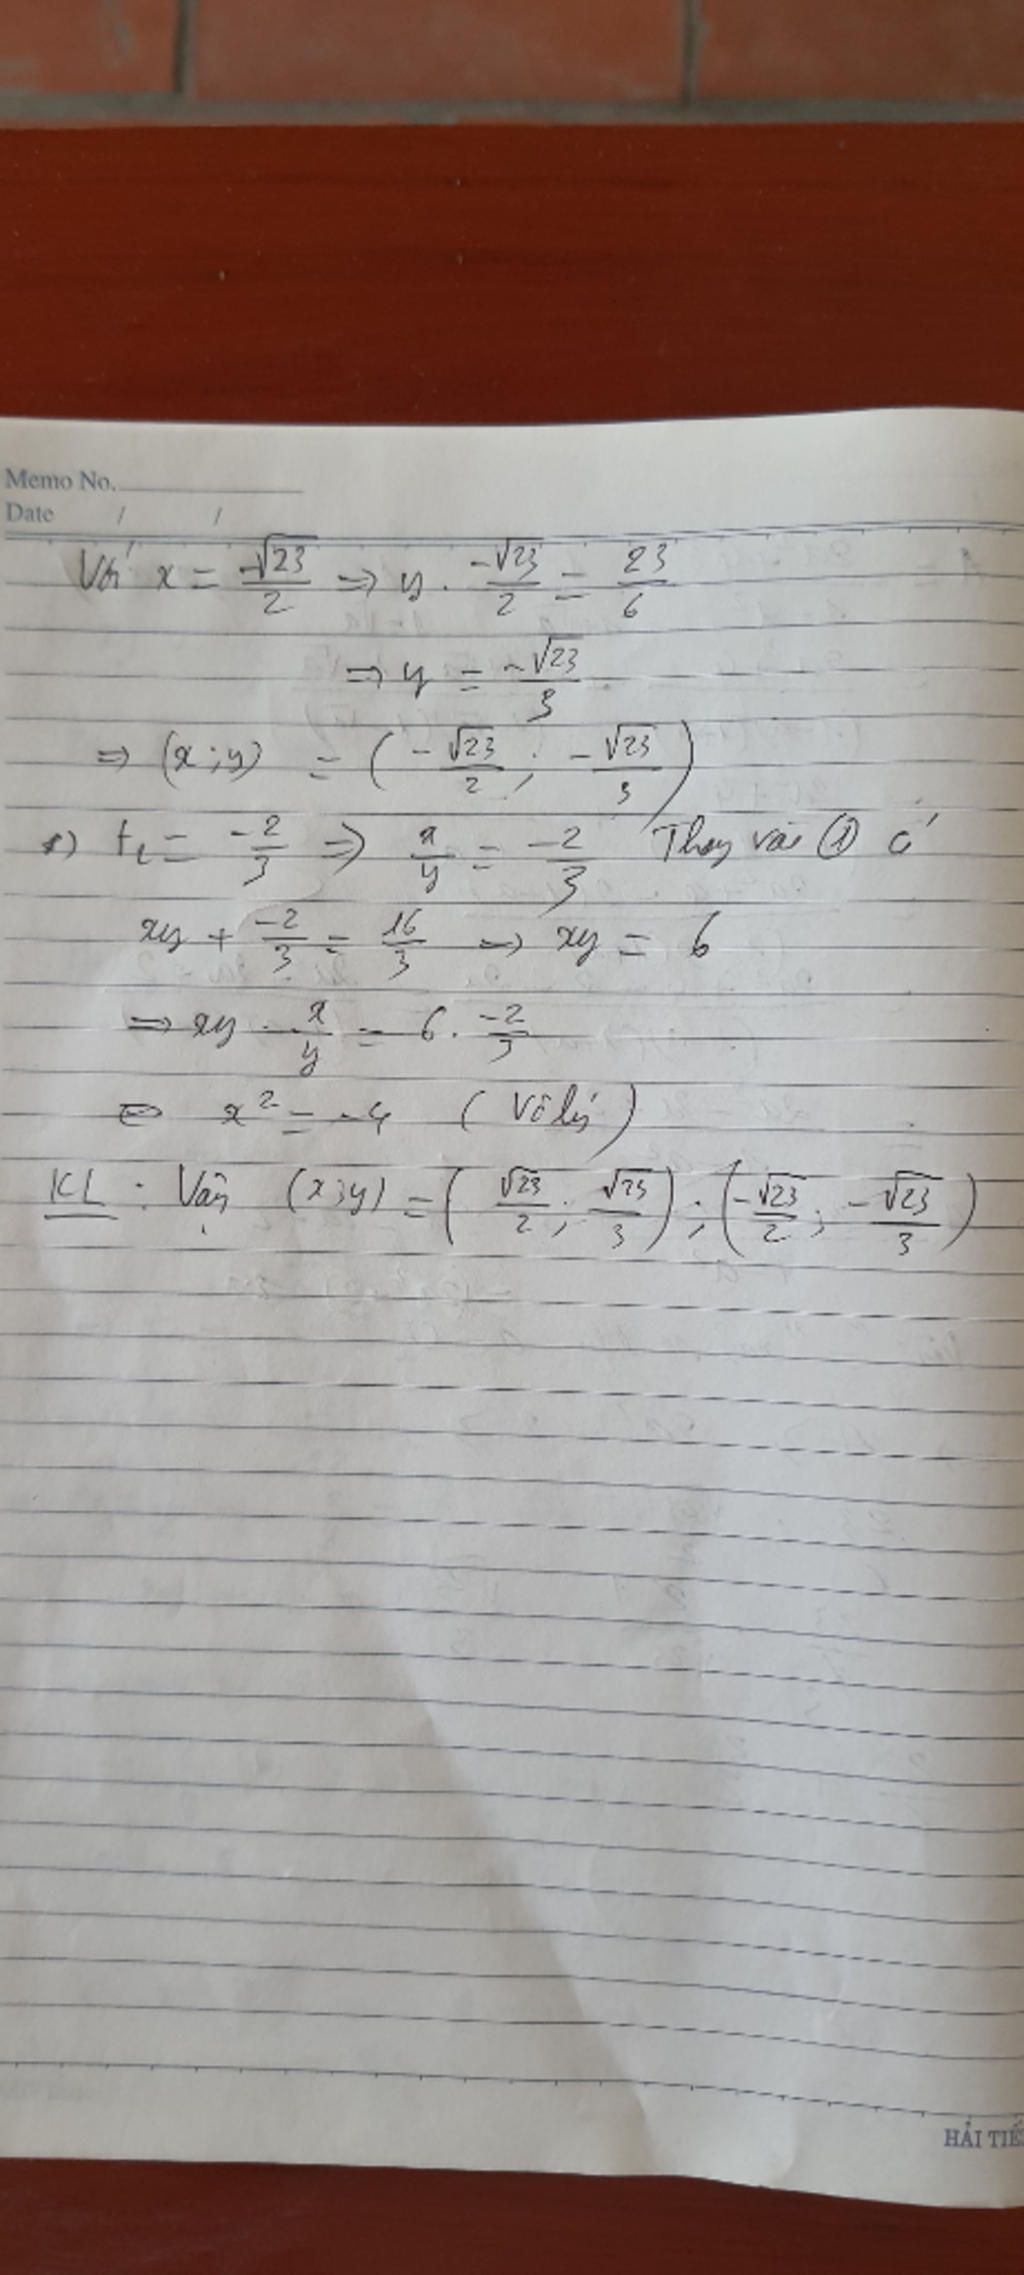 Memo No.
Date / /
Với x = -√23/2 ⇒ y . -√23/2 = 23/6
⇒ y = -√23/3
⇒ (x ; y) = ( -√23/2 ; -√23/3 )
*) t₂ = -2/3 ⇒ x/y = -2/3 Thay vào ① có
xy + -2/3 = 16/3 ⇒ xy = 6
⇒ xy . x/y = 6 . -2/3
⇔ x² = -4 ( Vô lý )
KL : Vậy (x;y) = ( √23/2 ; √23/3 ) ; ( -√23/2 ; -√23/3 )
HẢI TIẾ